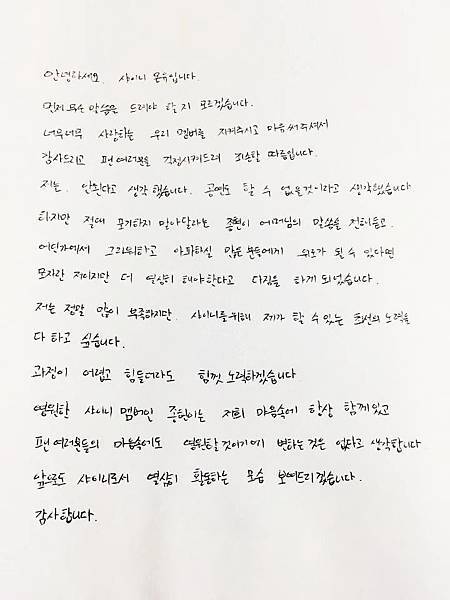 안녕하세요. 샤이니 온유입니다.
먼저 무슨 말씀을 드려야 할지 모르겠습니다.
너무너무 사랑하는 우리 멤버를 지켜주시고 마음써주셔서
감사드리고 팬여러분을 걱정시켜드려 죄송할 따름입니다.
저는. 안된다고 생각했습니다. 공연도 할 수 없을것이라고 생각했습니다
하지만 절대 포기하지 말아달라는 종현이 어머님의 말씀을 전해듣고.
어딘가에서 그리워하고 아파하실 많은 분들에게 위로가 될 수 있다면
모자란 저이지만 더 열심히 해야한다고 다짐을 하게되었습니다.
저는 정말 많이 부족하지만. 샤이니를 위해 제가 할 수 있는 최선의 노력을
다 하고 싶습니다.
과정이 어렵고 힘들더라도 힘껏 노력하겠습니다
영원한 샤이니 멤버인 종현이는 저희 마음속에 항상 함께있고
팬여러분들의 마음속에도 영원할것이기에 변하는 것은 없다고 생각합니다
앞으로도 샤이니로서 열심히 활동하는 모습 보여드리겠습니다.
감사합니다.